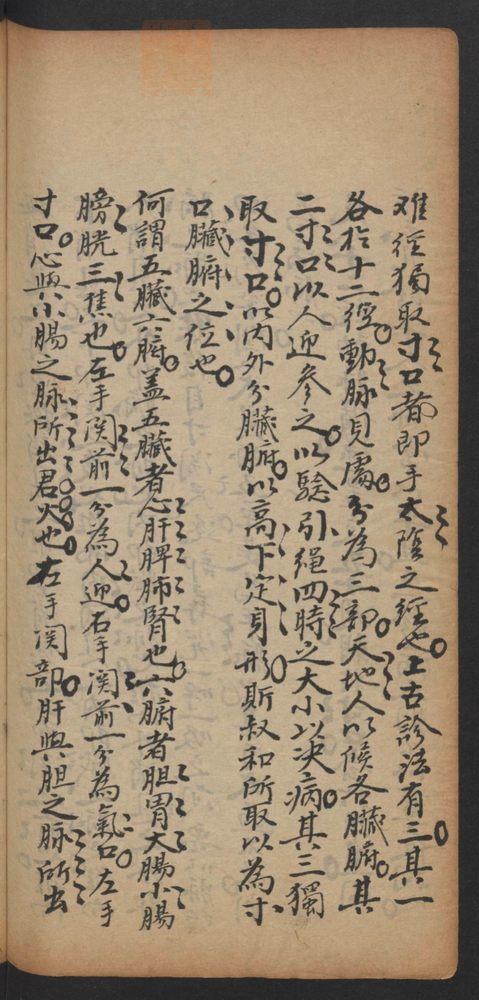 难徑獨取寸口者即手太陰之經也上古診法有三其一
各於十二徑動脉見處分為三部天地人以候各臟腑其
二寸口以人迎參之以驗引繩四時之大小以决病其三獨
取寸口以内外分臟腑以高下定身形斯叔和所取以為寸
口臟腑之位也
何謂五臟六腑盖五臟者心肝脾肺腎也六腑者胆胃大腸小腸
膀胱三焦也左手関前一分為人迎右手関前一分為氣口左手
寸口心與小腸之脉所出君火也左手関部肝與胆之脉所出